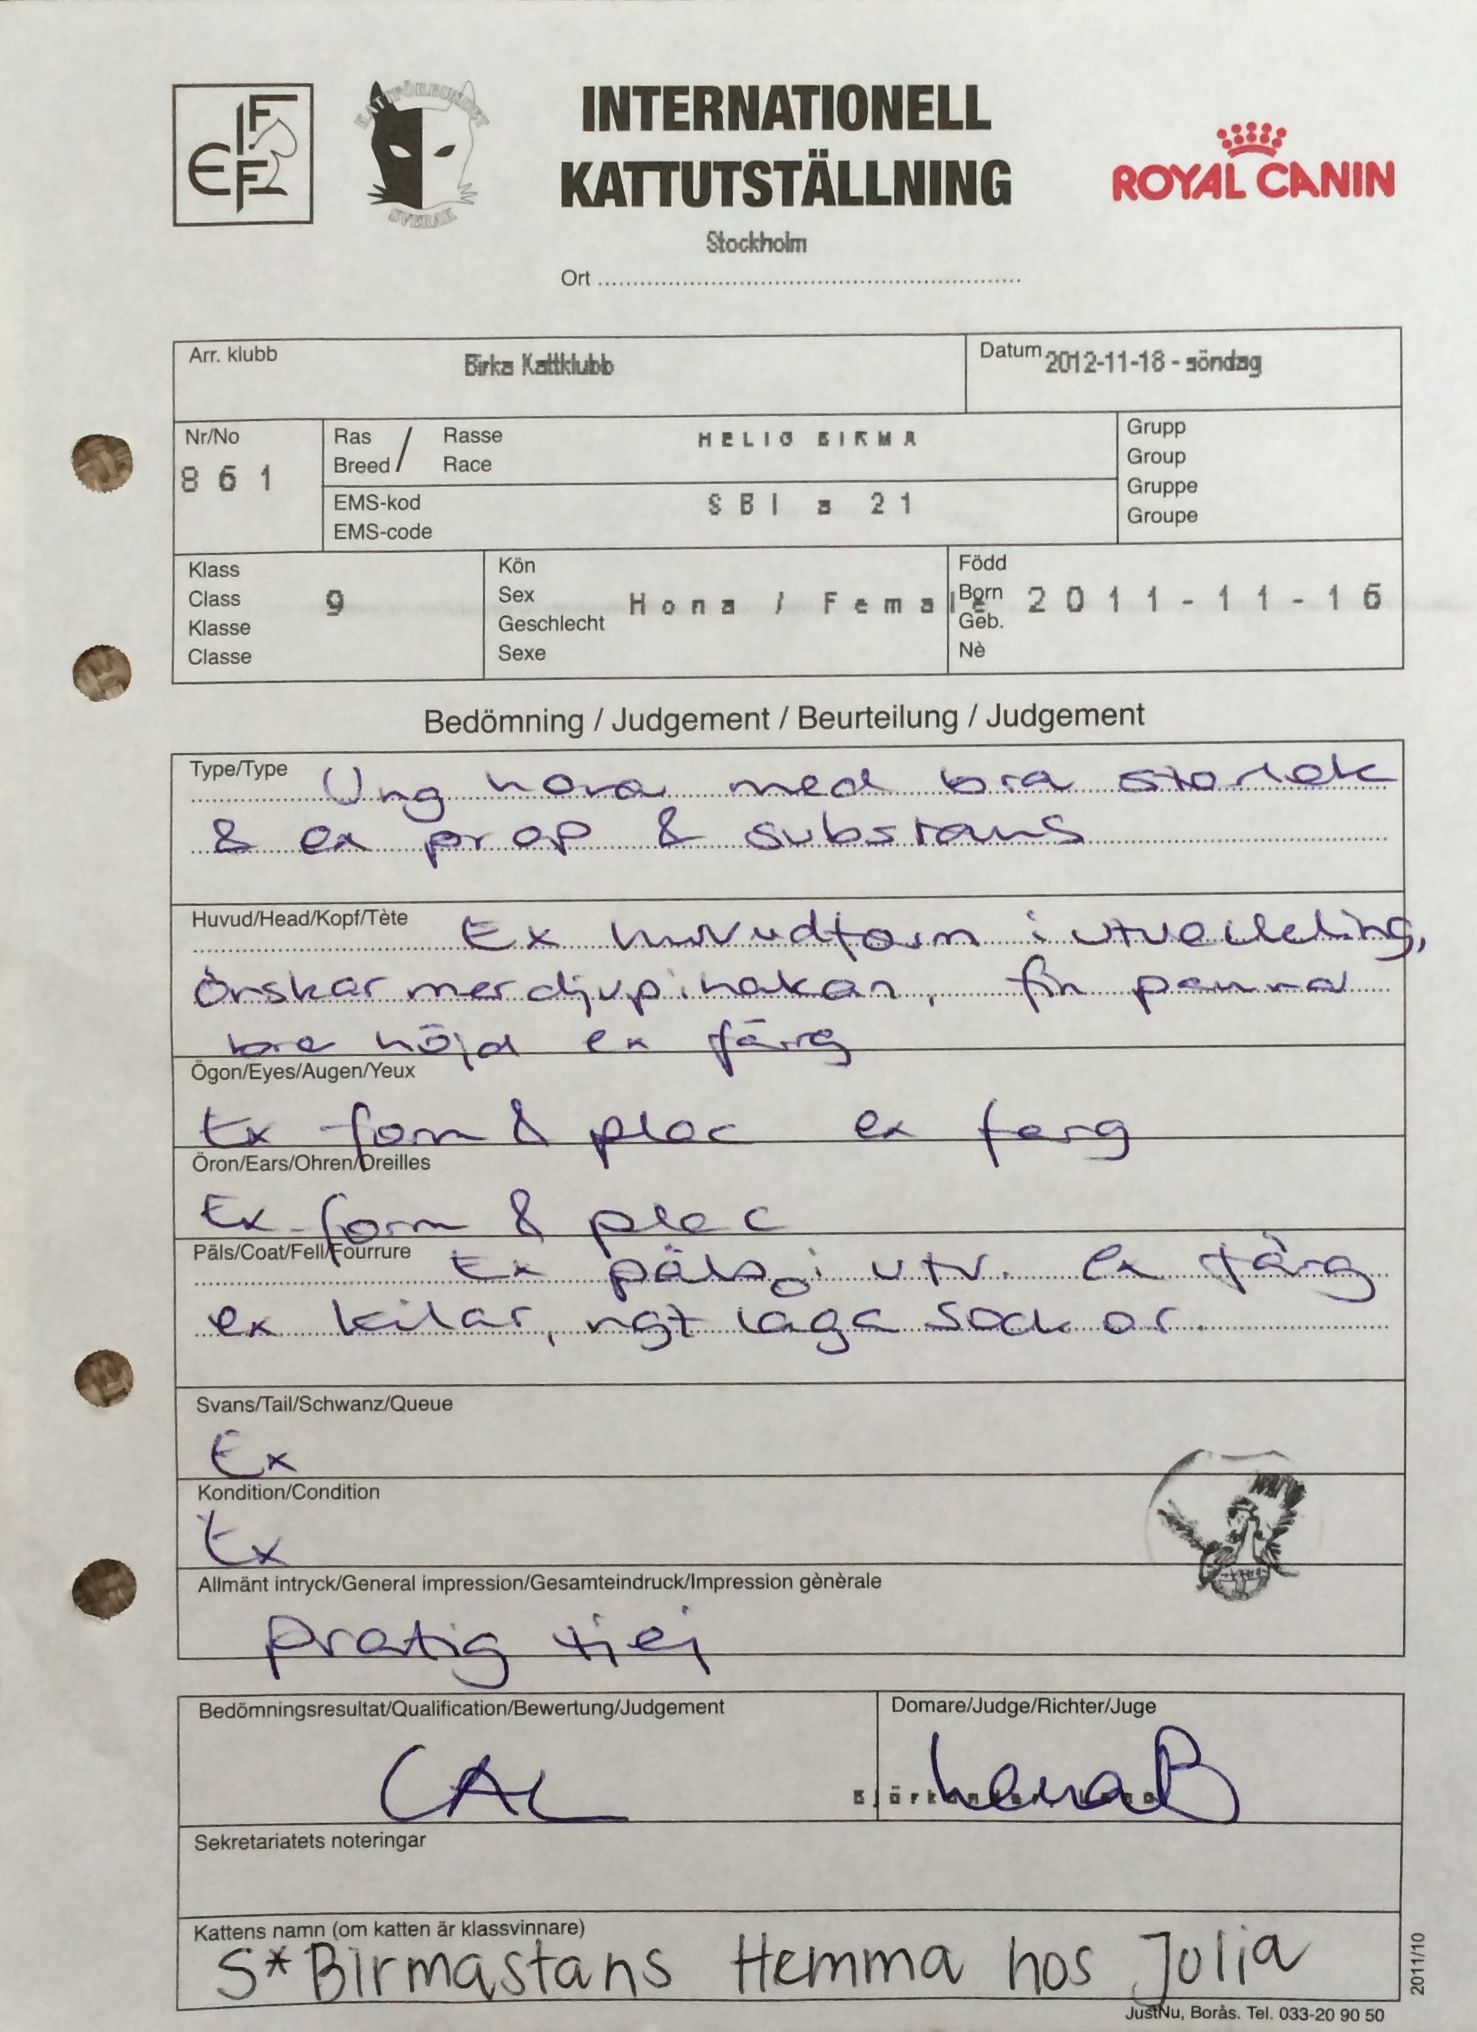 FIFE
KATTFÖRBUNDET
SVERAK
INTERNATIONELL
KATTUTSTÄLLNING
ROYAL CANIN
Stockholm
Ort
Arr. klubb Birka Kattklubb Datum 2012-11-18 - söndag
Nr/No 861
Ras / Rasse HELIG BIRMA
Breed / Race
EMS-kod SBI a 21
EMS-code
Grupp
Group
Gruppe
Groupe
Klass
Class 9
Klasse
Classe
Kön
Sex Hona / Female
Geschlecht
Sexe
Född
Born 2011-11-16
Geb.
Nè
Bedömning / Judgement / Beurteilung / Judgement
Type/Type Ung hona med bra storlek
& ex prop & substans
Huvud/Head/Kopf/Tète Ex huvudform i utveckling,
Önskar mer djup i hakan, fin panna
bra höjd ex färg
Ögon/Eyes/Augen/Yeux
Ex form & plac ex färg
Öron/Ears/Ohren/Oreilles
Ex form & plac
Päls/Coat/Fell/Fourrure Ex päls i utv. ex färg
ex kilar, ngt låga sockor.
Svans/Tail/Schwanz/Queue
Ex
Kondition/Condition
Ex
Allmänt intryck/General impression/Gesamteindruck/Impression gènèrale
pratig tjej
Bedömningsresultat/Qualification/Bewertung/Judgement
CAC
Domare/Judge/Richter/Juge
Lena B
Sekretariatets noteringar
Kattens namn (om katten är klassvinnare)
S*Birmastans Hemma hos Jolia
2011/10
JustNu, Borås. Tel. 033-20 90 50